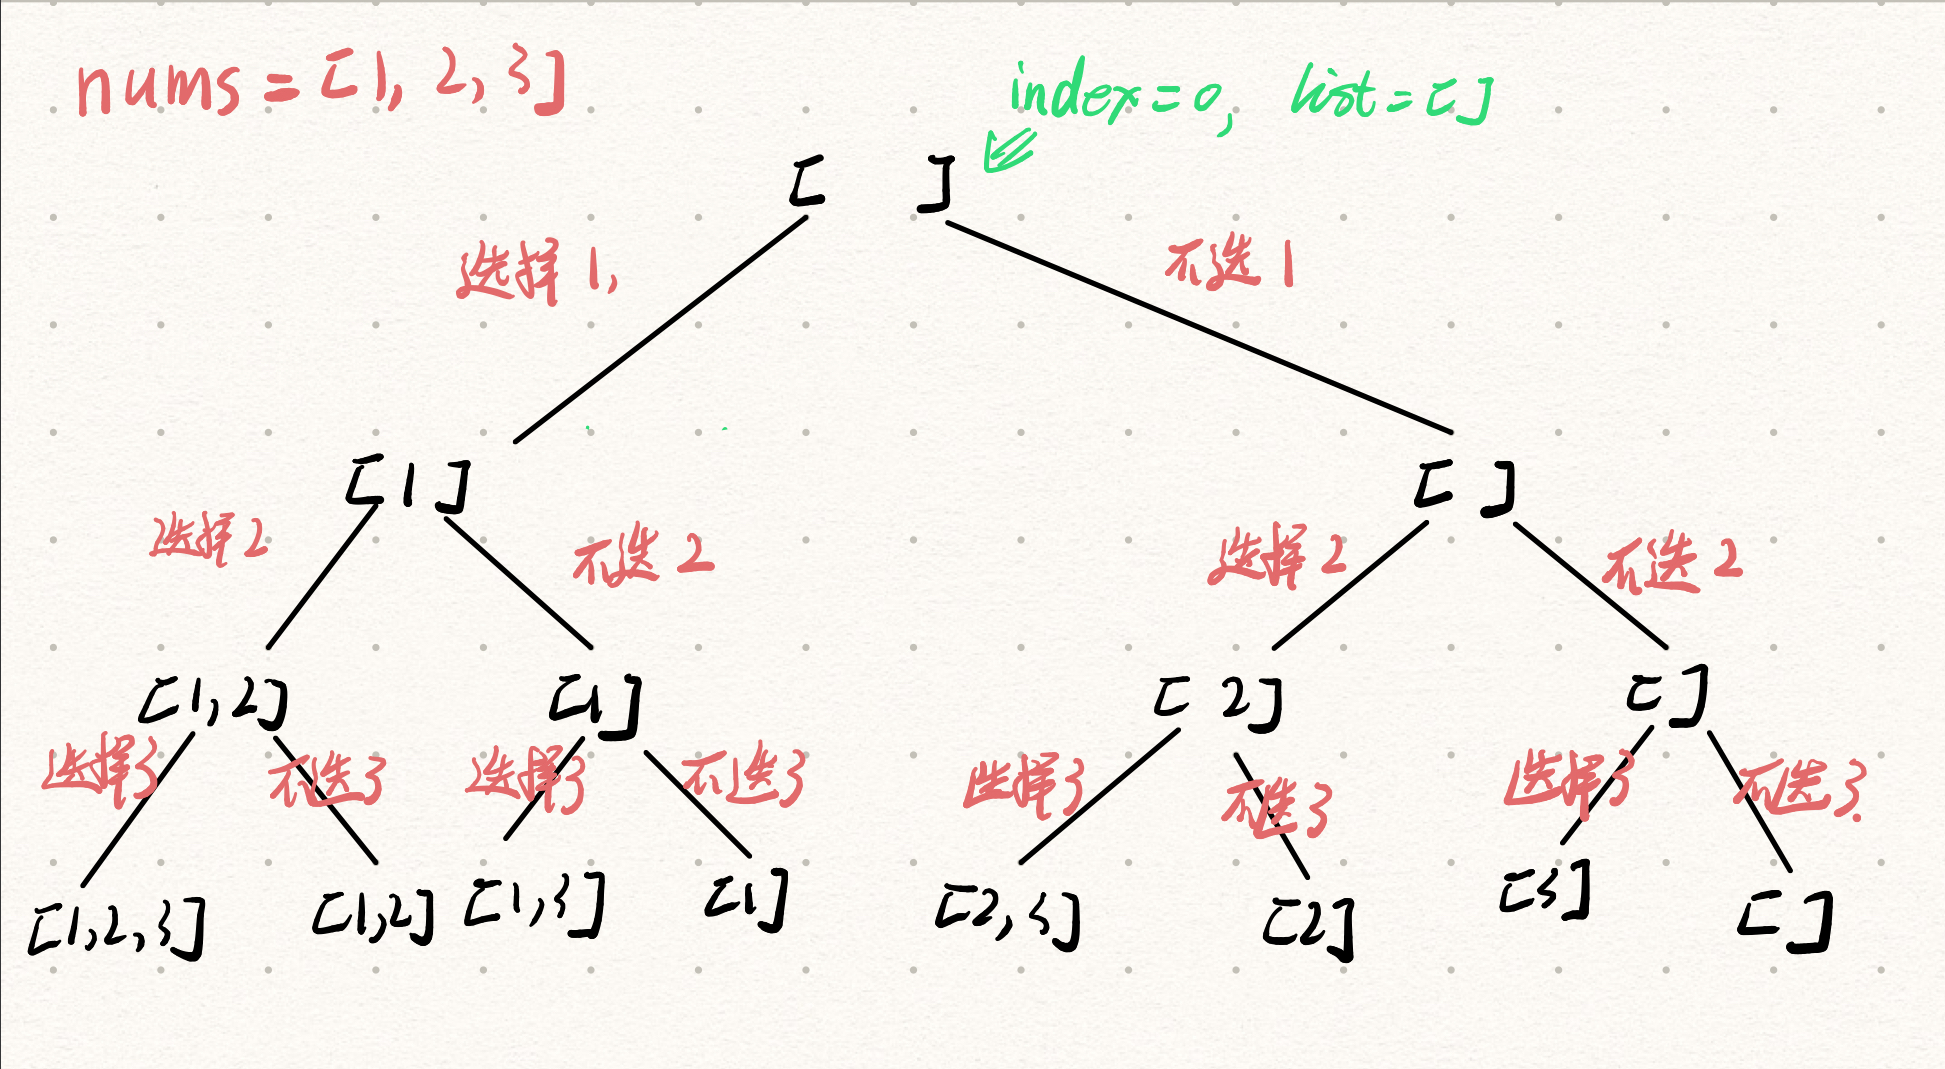 nums = [1, 2, 3]
index = 0, list = []
[ ]
选择 1,
不选 1
[1]
[ ]
选择 2
不选 2
选择 2
不选 2
[1, 2]
[1]
[2]
[]
选择3
不选3
选择3
不选3
选择3
不选3
选择3
不选3.
[1, 2, 3]
[1, 2]
[1, 3]
[1]
[2, 3]
[2]
[3]
[]